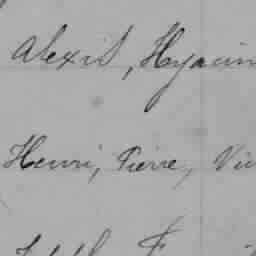 Alexis, Hyacin
Henri, Pierre, Vin